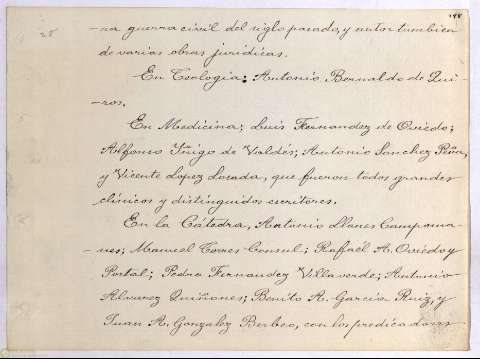 28
188
-na guerra civil del siglo pasado, y autor tambien
de varias obras juridicas.
En Teología: Antonio Bernaldo de Qui-
-ros.
En Medicina; Luis Fernandez de Oviedo;
Alfonso Iñigo de Valdés; Antonio Sanchez Peña,
y Vicente Lopez Losada, que fueron todos grandes
clínicos y distinguidos escritores.
En la Cátedra, Antonio Llanes Campoma-
-nes; Manuel Torres Consul; Rafaél A. Oviedo y
Portal; Pedro Fernandez Villaverde; Antonio
Alvarez Quiñones; Benito A. García Ruiz, y
Juan A. Gonzalez Berbeo, con los predicadores